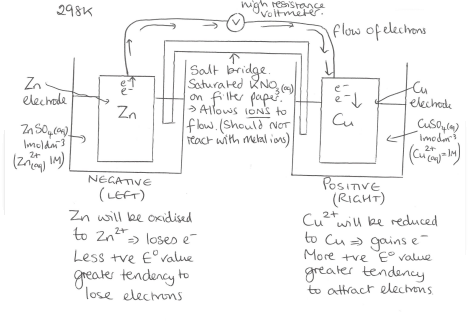 298K
high resistance
voltmeter.
V
flow of electrons
Zn
electrode
e⁻ ↑
e⁻
Zn
Salt bridge.
Saturated KNO₃(aq)
on filter paper.
→ Allows IONS to
flow. (Should NOT
react with metal ions)
e⁻
e⁻ ↓
Cu
Cu
electrode
ZnSO₄(aq)
1moldm⁻³
(Zn²⁺(aq) 1M)
CuSO₄(aq)
1moldm⁻³
(Cu²⁺(aq) = 1M)
NEGATIVE
(LEFT)
POSITIVE
(RIGHT)
Zn will be oxidised
to Zn²⁺ ⇒ loses e⁻
Less +ve E° value
greater tendency to
lose electrons
Cu²⁺ will be reduced
to Cu ⇒ gains e⁻
More +ve E° value
greater tendency
to attract electrons